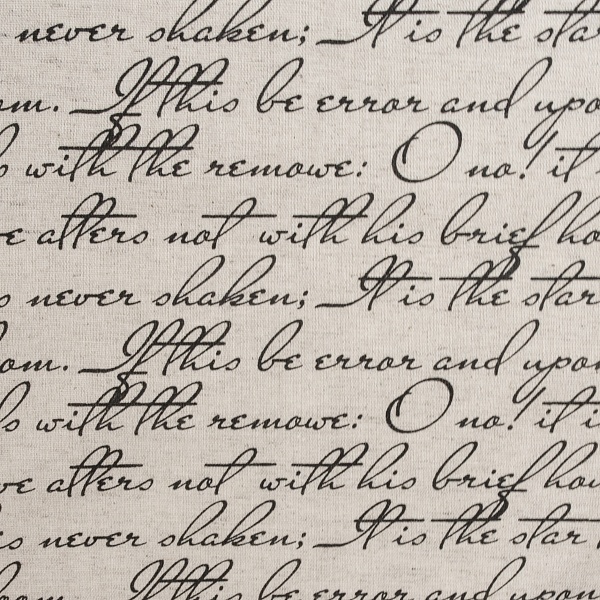 never shaken; It is the star
om. If this be error and upo
s with the remove: O no! it
e alters not with his brief ho
s never shaken; It is the star
oom. If this be error and upon
ds with the remove: O no! it i
ve alters not with his brief hou
is never shaken; It is the star
oom. If this be error and upon